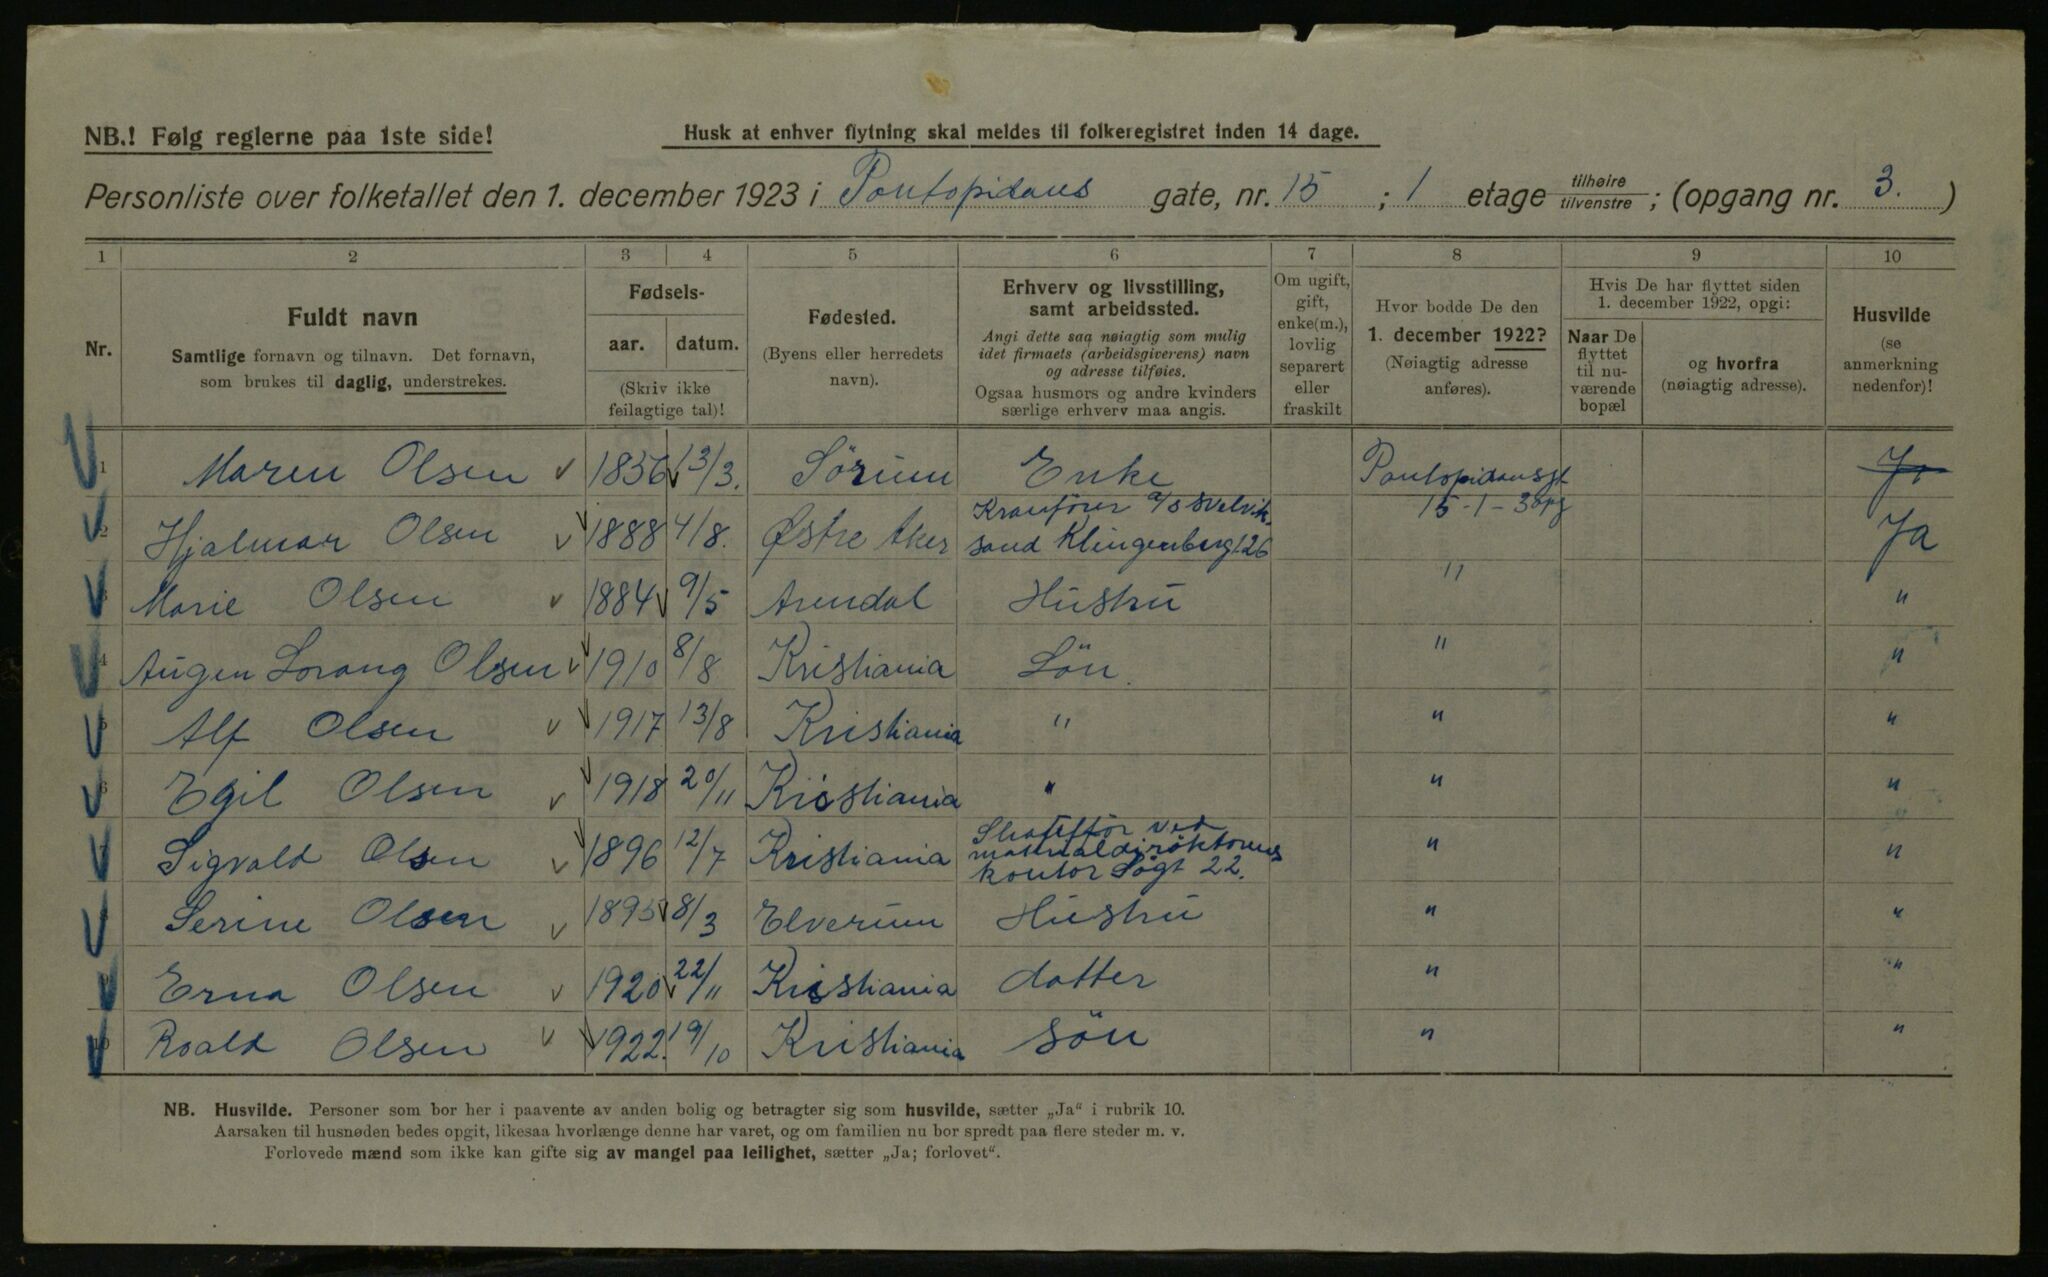 NB.! Følg reglerne paa 1ste side!
Husk at enhver flytning skal meldes til folkeregistret inden 14 dage.
Personliste over folketallet den 1. december 1923 i Pontopidans gate, nr. 15 ; 1 etage tilhøire tilvenstre ; (opgang nr. 3. )
1 2 3 4 5 6 7 8 9 10
Nr.
Fuldt navn
Samtlige fornavn og tilnavn. Det fornavn,
som brukes til daglig, understrekes.
Fødsels-
aar. datum.
(Skriv ikke
feilagtige tal)!
Fødested.
(Byens eller herredets
navn).
Erhverv og livsstilling,
samt arbeidssted.
Angi dette saa nøiagtig som mulig
idet firmaets (arbeidsgiverens) navn
og adresse tilføies.
Ogsaa husmors og andre kvinders
særlige erhverv maa angis.
Om ugift,
gift,
enke(m.),
lovlig
separert
eller
fraskilt
Hvor bodde De den
1. december 1922?
(Nøiagtig adresse
anføres).
Hvis De har flyttet siden
1. december 1922, opgi:
Naar De
flyttet
til nu-
værende
bopæl
og hvorfra
(nøiagtig adresse).
Husvilde
(se
anmerkning
nedenfor)!
1 Maren Olsen 1856 13/3. Sörum Enke Pontopidansgt Ja
15-1-3opg
2 Hjalmar Olsen 1888 4/8. Østre Aker Kranförer a/s Svelvik- Ja
sand Klingenberg 26
3 Marie Olsen 1884 9/5 Arendal Hustru " "
4 Augen Lorang Olsen 1910 8/8 Kristiania Sön. " "
5 Alf Olsen 1917 13/8 Kristiania " " "
6 Egil Olsen 1918 20/11 Kristiania " " "
7 Sigvald Olsen 1896 12/7 Kristiania ved " "
kontor 22.
8 Serine Olsen 1895 8/3 Elverum Hustru " "
9 Erna Olsen 1920 22/11 Kristiania datter " "
10 Roald Olsen 1922. 19/10 Kristiania sön " "
NB. Husvilde. Personer som bor her i paavente av anden bolig og betragter sig som husvilde, sætter „Ja“ i rubrik 10.
Aarsaken til husnøden bedes opgit, likesaa hvorlænge denne har varet, og om familien nu bor spredt paa flere steder m. v.
Forlovede mænd som ikke kan gifte sig av mangel paa leilighet, sætter „Ja; forlovet“.